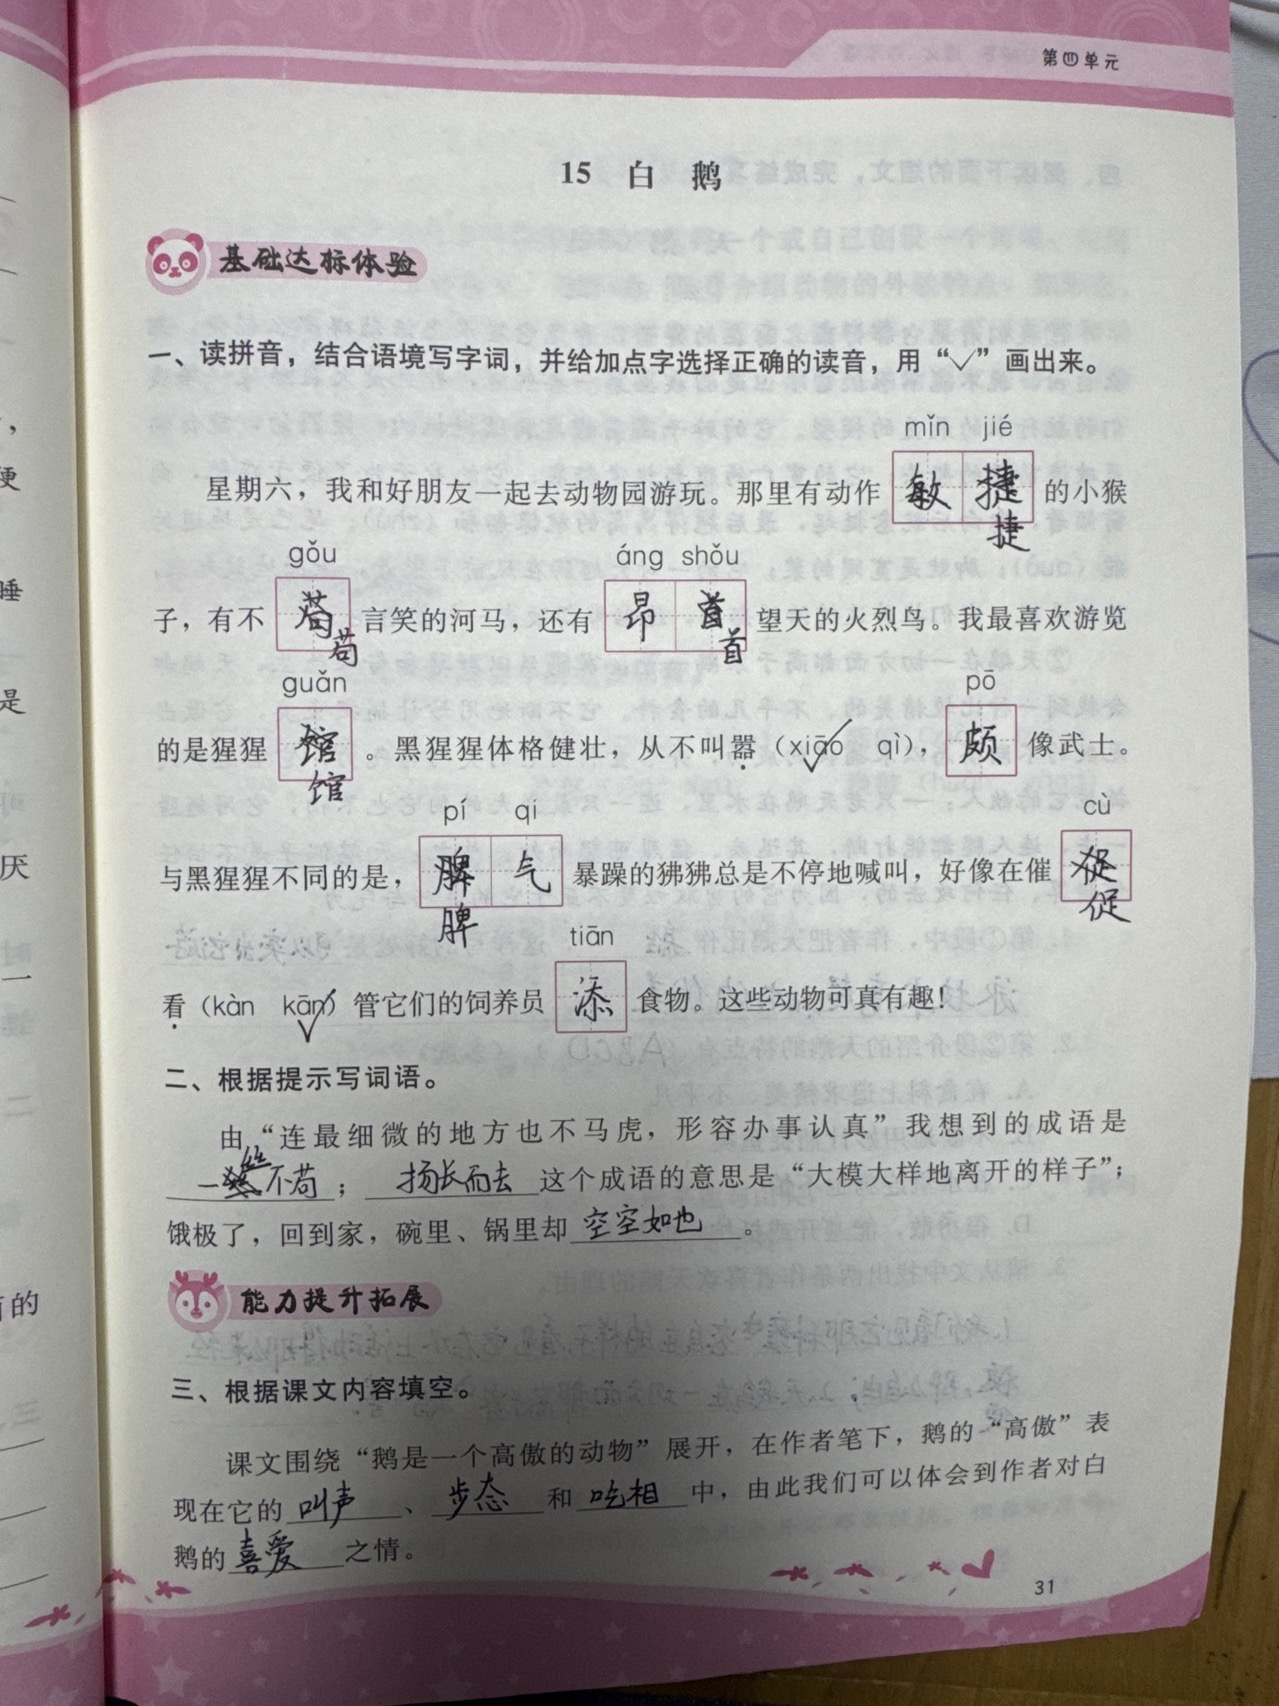 第四单元
15 白 鹅
基础达标体验
一、读拼音，结合语境写字词，并给加点字选择正确的读音，用“✓”画出来。
mǐn jié
星期六，我和好朋友一起去动物园游玩。那里有动作 敏捷 的小猴
捷
gǒu áng shǒu
子，有不 苟 言笑的河马，还有 昂首 望天的火烈鸟。我最喜欢游览
苟 首
guǎn pō
的是猩猩 馆 。黑猩猩体格健壮，从不叫嚣（xiāo✓ qì），颇 像武士。
馆
pí qi cù
与黑猩猩不同的是，脾气 暴躁的狒狒总是不停地喊叫，好像在催 促
脾 促
tiān
看（kàn kān✓）管它们的饲养员 添 食物。这些动物可真有趣！
二、根据提示写词语。
由“连最细微的地方也不马虎，形容办事认真”我想到的成语是
一丝不苟；扬长而去这个成语的意思是“大模大样地离开的样子”；
饿极了，回到家，碗里、锅里却空空如也。
能力提升拓展
三、根据课文内容填空。
课文围绕“鹅是一个高傲的动物”展开，在作者笔下，鹅的“高傲”表
现在它的叫声、步态和吃相中，由此我们可以体会到作者对白
鹅的喜爱之情。
31
睡
是
厌
一
的